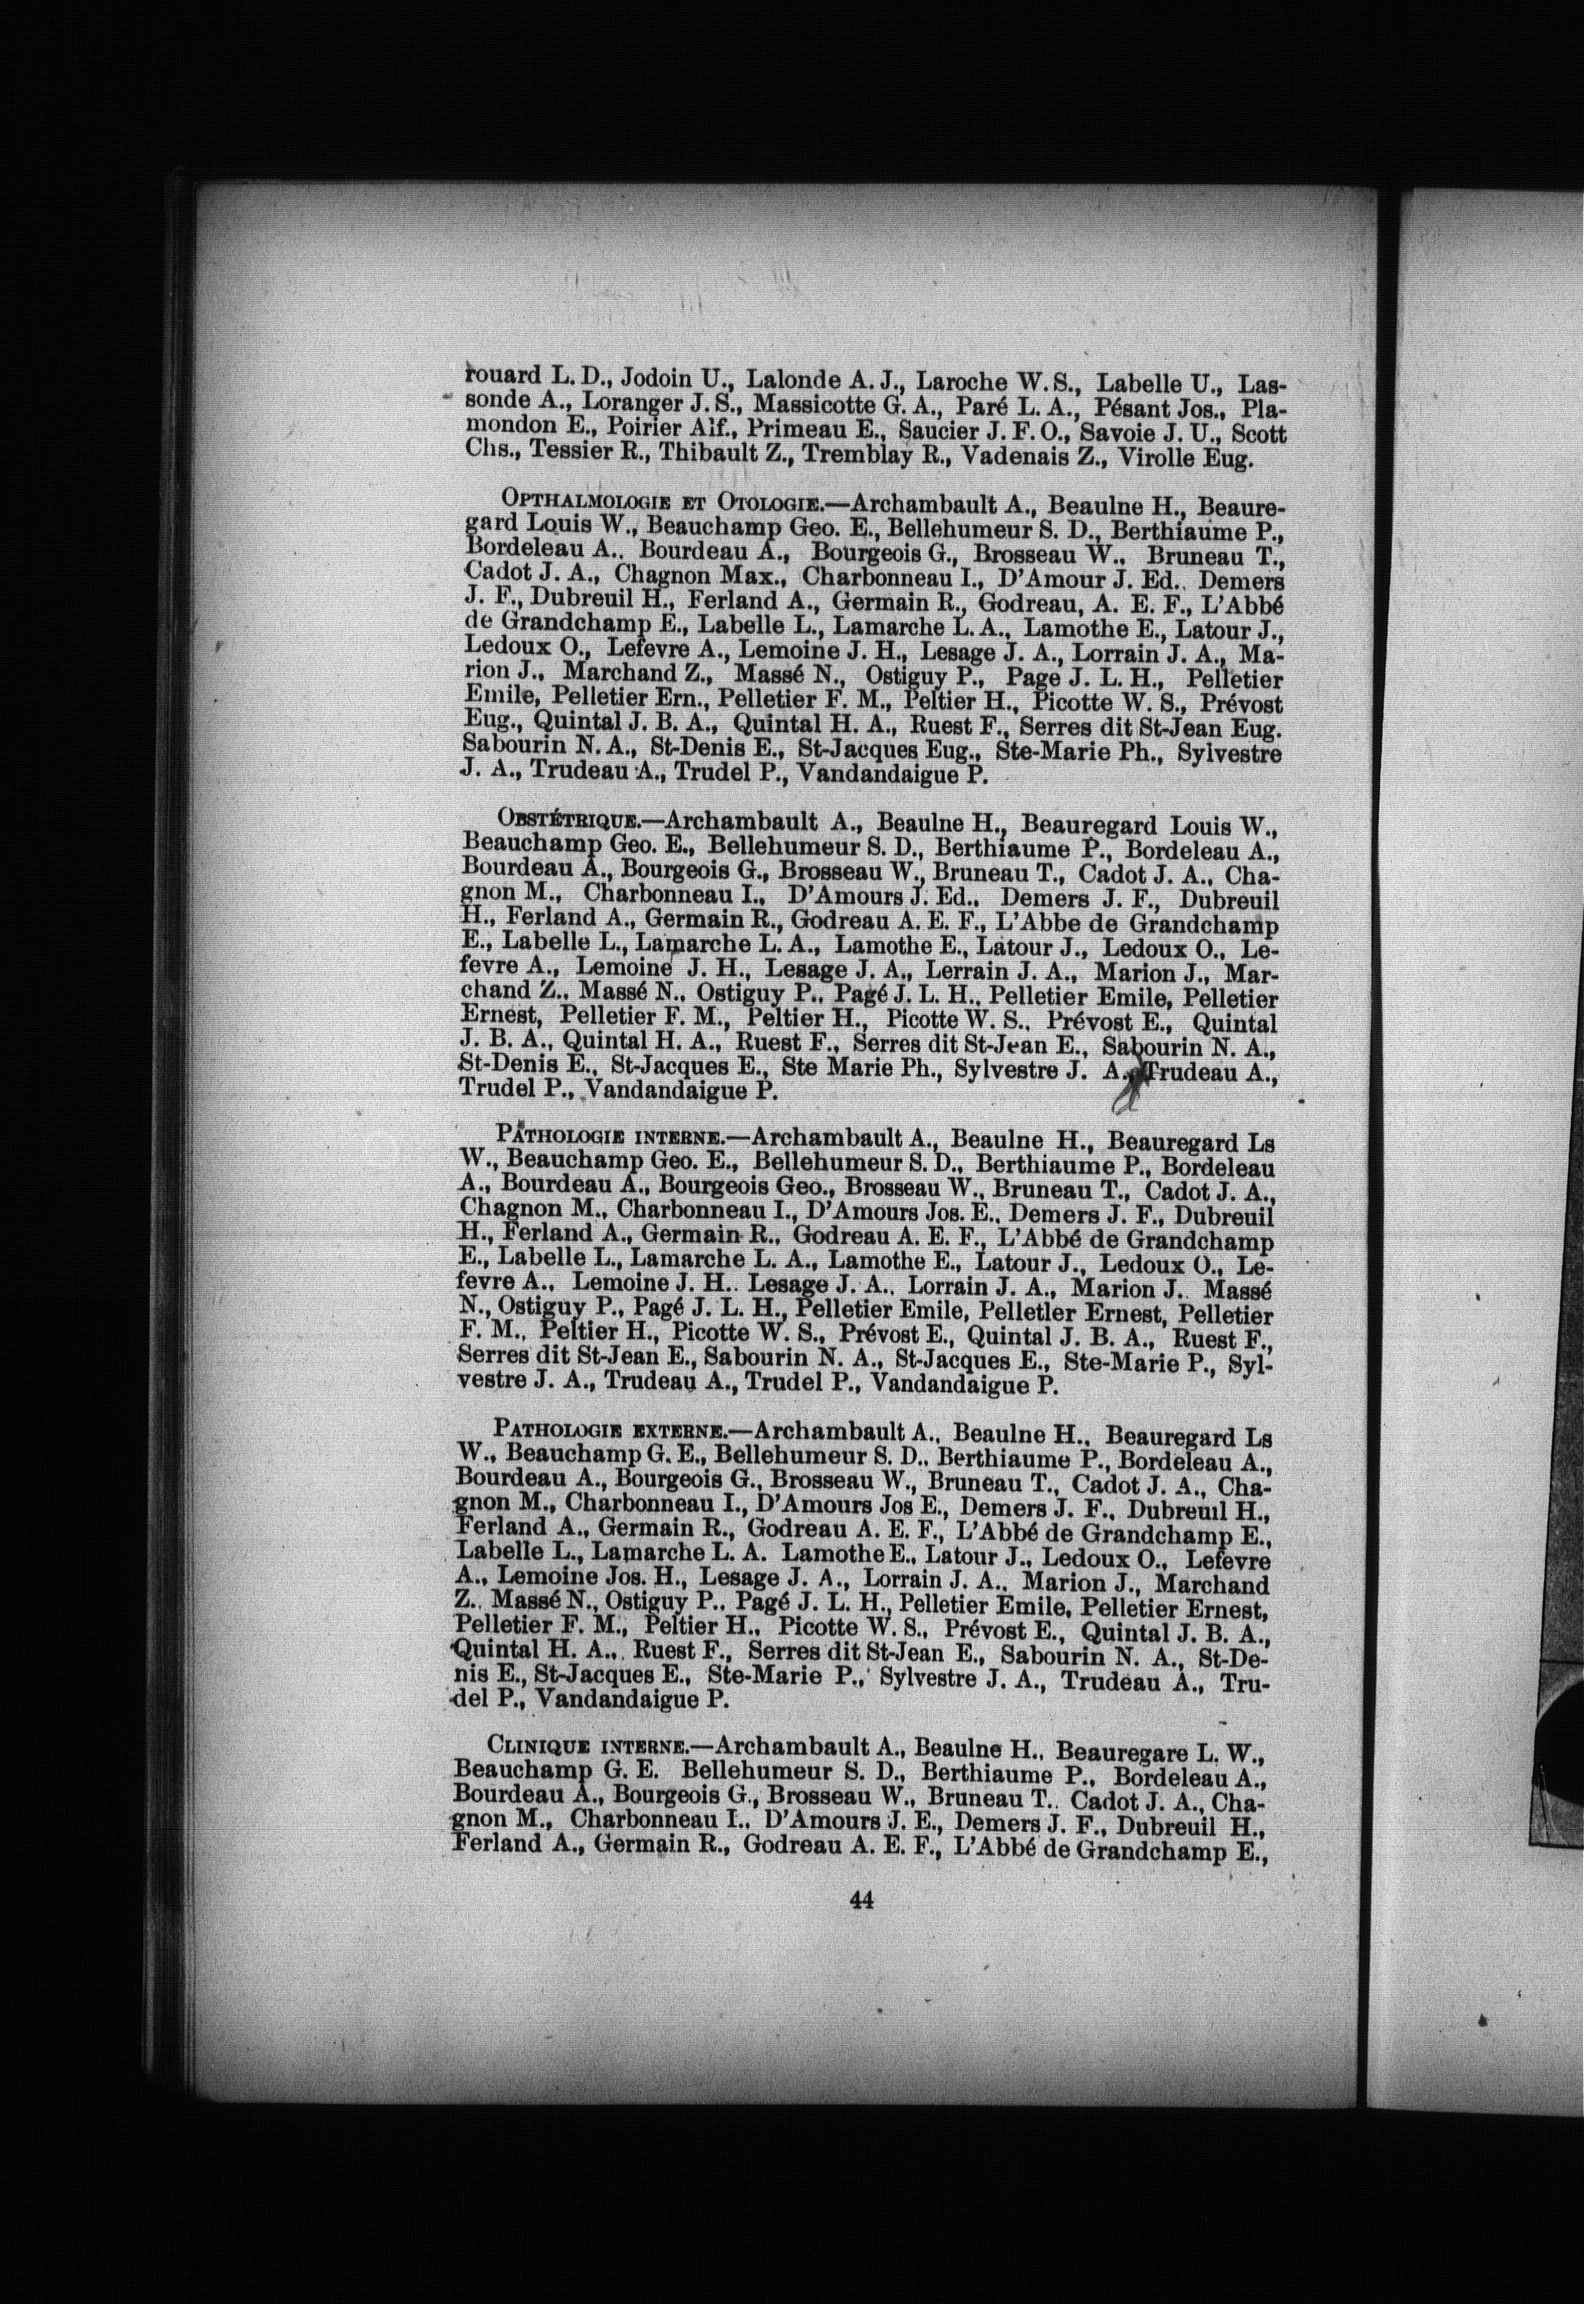 rouard L. D., Jodoin U., Lalonde A. J., Laroche W. S., Labelle U., Las-
sonde A., Loranger J. S., Massicotte G. A., Paré L. A., Pésant Jos., Pla-
mondon E., Poirier Alf., Primeau E., Saucier J. F. O., Savoie J. U., Scott
Chs., Tessier R., Thibault Z., Tremblay R., Vadenais Z., Virolle Eug.
OPTHALMOLOGIE ET OTOLOGIE.—Archambault A., Beaulne H., Beaure-
gard Louis W., Beauchamp Geo. E., Bellehumeur S. D., Berthiaume P.,
Bordeleau A.. Bourdeau A., Bourgeois G., Brosseau W., Bruneau T.,
Cadot J. A., Chagnon Max., Charbonneau I., D'Amour J. Ed.. Demers
J. F., Dubreuil H., Ferland A., Germain R., Godreau, A. E. F., L'Abbé
de Grandchamp E., Labelle L., Lamarche L. A., Lamothe E., Latour J.,
Ledoux O., Lefevre A., Lemoine J. H., Lesage J. A., Lorrain J. A., Ma-
rion J., Marchand Z., Massé N., Ostiguy P., Page J. L. H., Pelletier
Emile, Pelletier Ern., Pelletier F. M., Peltier H., Picotte W. S., Prévost
Eug., Quintal J. B. A., Quintal H. A., Ruest F., Serres dit St-Jean Eug.
Sabourin N. A., St-Denis E., St-Jacques Eug., Ste-Marie Ph., Sylvestre
J. A., Trudeau A., Trudel P., Vandandaigue P.
OBSTÉTRIQUE.—Archambault A., Beaulne H., Beauregard Louis W.,
Beauchamp Geo. E., Bellehumeur S. D., Berthiaume P., Bordeleau A.,
Bourdeau A., Bourgeois G., Brosseau W., Bruneau T., Cadot J. A., Cha-
gnon M., Charbonneau I., D'Amours J. Ed., Demers J. F., Dubreuil
H., Ferland A., Germain R., Godreau A. E. F., L'Abbe de Grandchamp
E., Labelle L., Lamarche L. A., Lamothe E., Latour J., Ledoux O., Le-
fevre A., Lemoine J. H., Lesage J. A., Lerrain J. A., Marion J., Mar-
chand Z., Massé N., Ostiguy P., Pagé J. L. H., Pelletier Emile, Pelletier
Ernest, Pelletier F. M., Peltier H., Picotte W. S., Prévost E., Quintal
J. B. A., Quintal H. A., Ruest F., Serres dit St-Jean E., Sabourin N. A.,
St-Denis E., St-Jacques E., Ste Marie Ph., Sylvestre J. A., Trudeau A.,
Trudel P., Vandandaigue P.
PATHOLOGIE INTERNE.—Archambault A., Beaulne H., Beauregard Ls
W., Beauchamp Geo. E., Bellehumeur S. D., Berthiaume P., Bordeleau
A., Bourdeau A., Bourgeois Geo., Brosseau W., Bruneau T., Cadot J. A.,
Chagnon M., Charbonneau I., D'Amours Jos. E., Demers J. F., Dubreuil
H., Ferland A., Germain R., Godreau A. E. F., L'Abbé de Grandchamp
E., Labelle L., Lamarche L. A., Lamothe E., Latour J., Ledoux O., Le-
fevre A., Lemoine J. H.. Lesage J. A., Lorrain J. A., Marion J.. Massé
N., Ostiguy P., Pagé J. L. H., Pelletier Emile, Pelletler Ernest, Pelletier
F. M., Peltier H., Picotte W. S., Prévost E., Quintal J. B. A., Ruest F.,
Serres dit St-Jean E., Sabourin N. A., St-Jacques E., Ste-Marie P., Syl-
vestre J. A., Trudeau A., Trudel P., Vandandaigue P.
PATHOLOGIE EXTERNE.—Archambault A., Beaulne H., Beauregard Ls
W., Beauchamp G. E., Bellehumeur S. D.. Berthiaume P., Bordeleau A.,
Bourdeau A., Bourgeois G., Brosseau W., Bruneau T., Cadot J. A., Cha-
gnon M., Charbonneau I., D'Amours Jos E., Demers J. F., Dubreuil H.,
Ferland A., Germain R., Godreau A. E. F., L'Abbé de Grandchamp E.,
Labelle L., Lamarche L. A. Lamothe E., Latour J., Ledoux O., Lefevre
A., Lemoine Jos. H., Lesage J. A., Lorrain J. A., Marion J., Marchand
Z., Massé N., Ostiguy P., Pagé J. L. H., Pelletier Emile, Pelletier Ernest,
Pelletier F. M., Peltier H., Picotte W. S., Prévost E., Quintal J. B. A.,
Quintal H. A., Ruest F., Serres dit St-Jean E., Sabourin N. A., St-De-
nis E., St-Jacques E., Ste-Marie P., Sylvestre J. A., Trudeau A., Tru-
del P., Vandandaigue P.
CLINIQUE INTERNE.—Archambault A., Beaulne H., Beauregare L. W.,
Beauchamp G. E. Bellehumeur S. D., Berthiaume P., Bordeleau A.,
Bourdeau A., Bourgeois G., Brosseau W., Bruneau T.. Cadot J. A., Cha-
gnon M., Charbonneau I., D'Amours J. E., Demers J. F., Dubreuil H.,
Ferland A., Germain R., Godreau A. E. F., L'Abbé de Grandchamp E.,
44